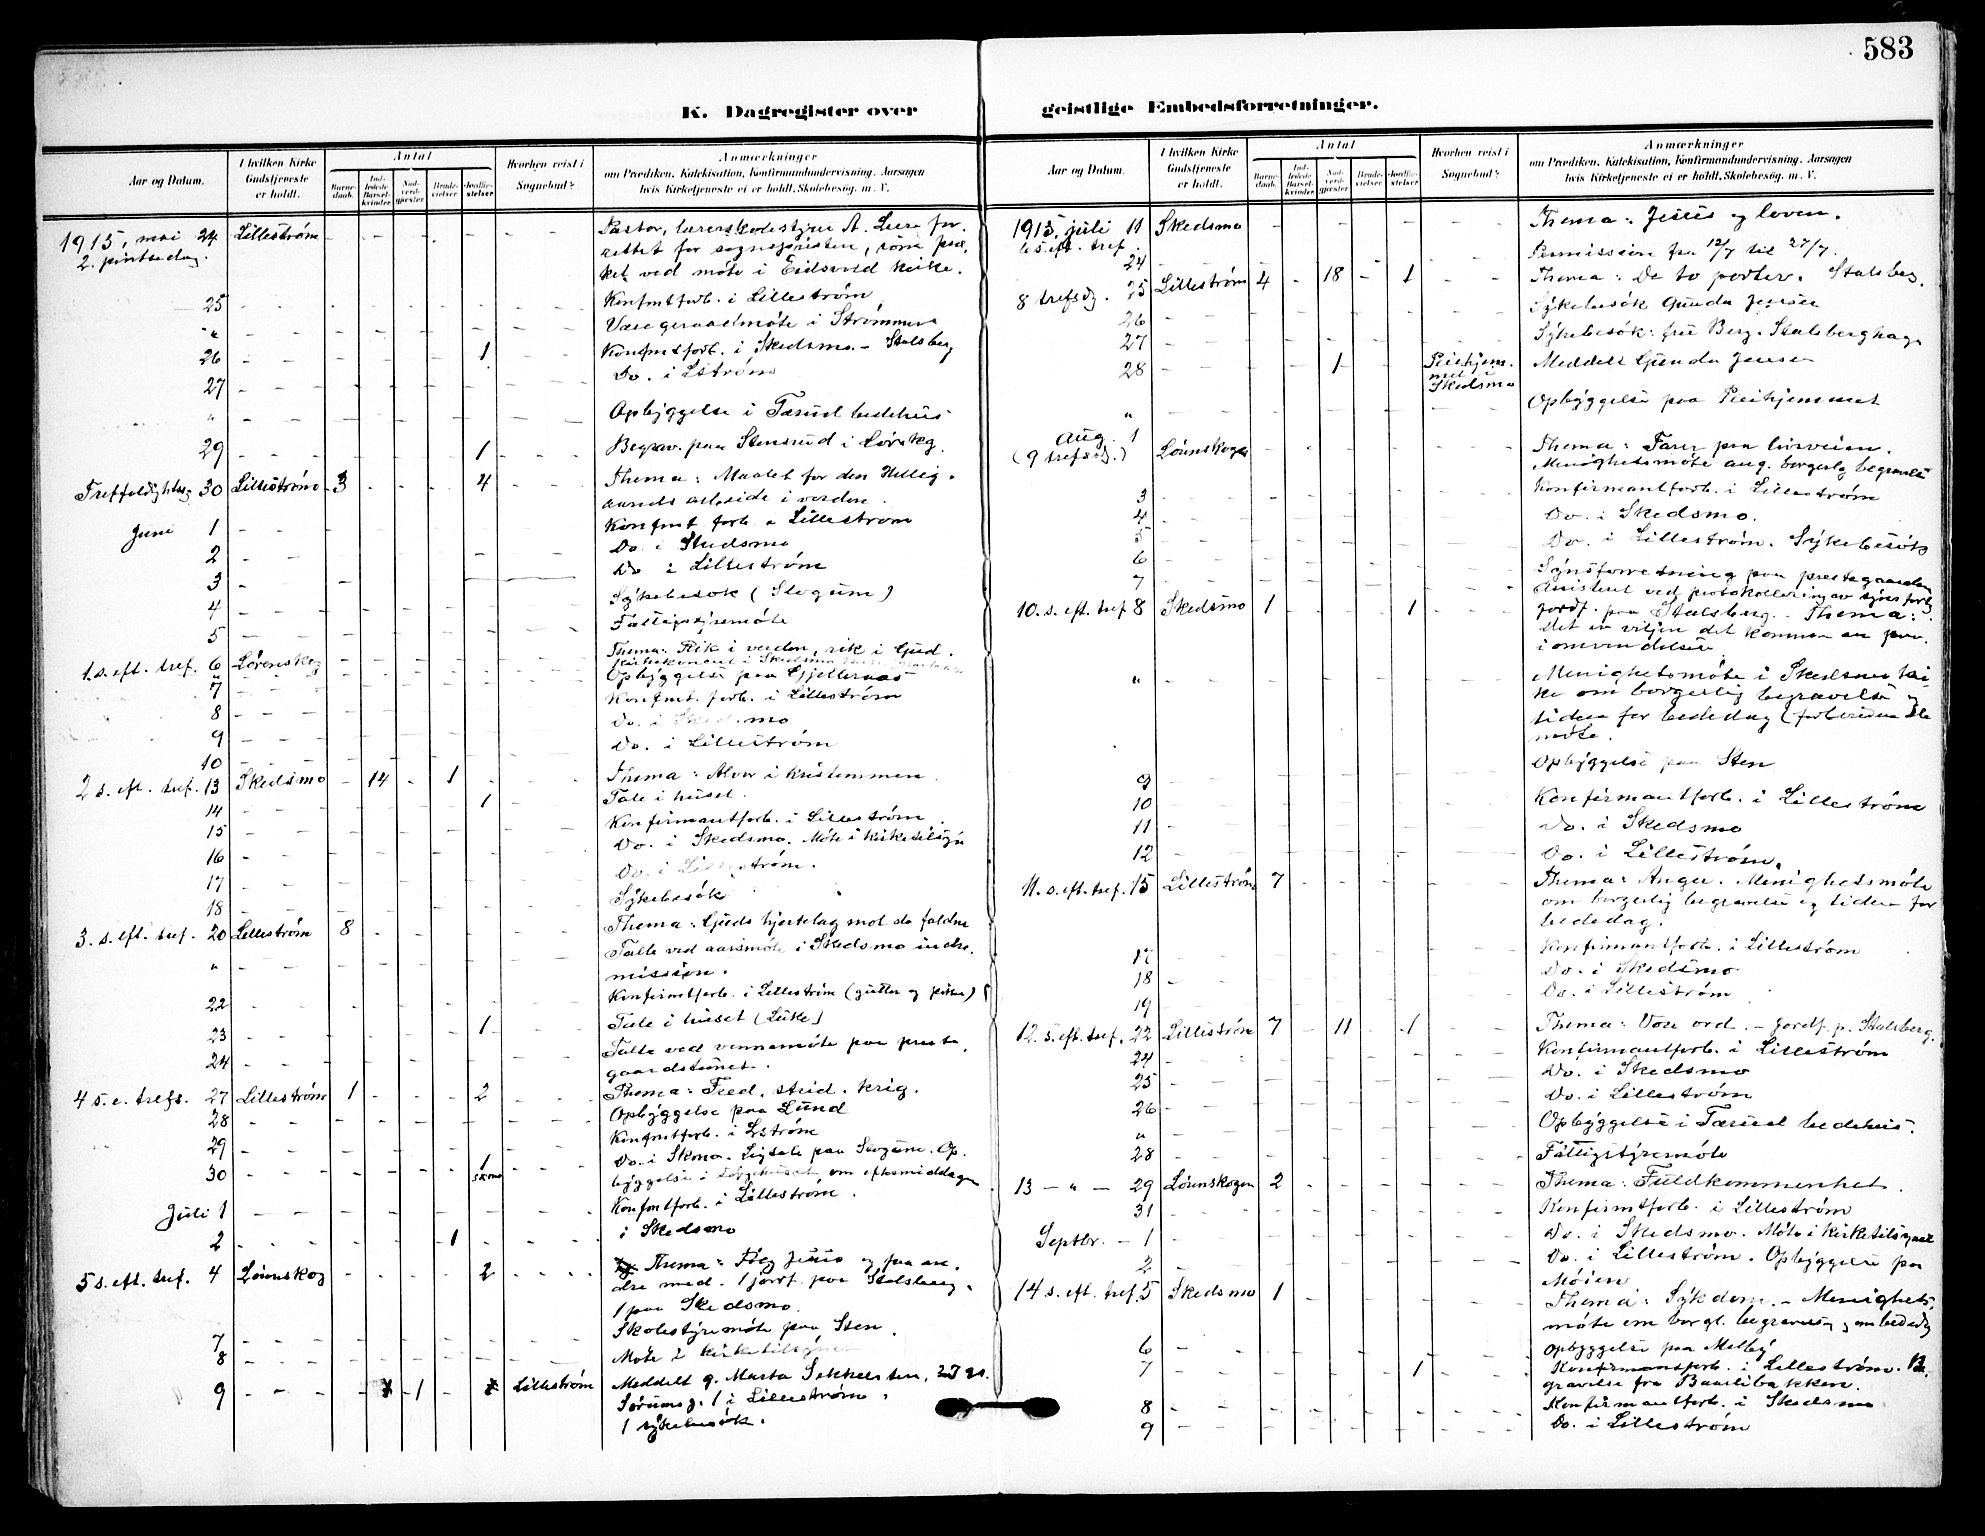 583
K. Dagregister over geistlige Embedsforretninger.
Aar og Datum.
I hvilken Kirke Gudstjeneste er holdt.
Antal
Barnedaab.
Indledede Barselkvinder
Nadverdgjester
Brudevielser
Jordfæstelser
Hvorhen reist i Sognebud?
Anmærkninger
om Prædiken, Katekisation, Konfirmandundervisning. Aarsagen
hvis Kirketjeneste ei er holdt. Skolebesøg. m. V.
1915, mai 24 Lilleström
2. pintsedag.
ket ved möte i Eidsvold kirke.
25 Konfmtforb. i Lilleström
" i Strömmen
26 1 Konfmtforb. i Skedsmo - Stalsberg
27 Do. i Lström
" Opbyggelse i Tærud bedehus
29 1 Begrav. paa Stensrud i Lörskg.
30 Lilleström 3 4 Thema: Maalet for den Hellig-
aands arbeide i verden.
Juni 1 Konfmt. forb. i Lilleström
2 Do. i Skedsmo
3 Do i Lilleström
4 Sykebesök (Slogum)
5 Fattigstyremöte
1. s. eft. tref. 6 Lörenskog Thema: Rik i verden, rik i Gud.
" Opbyggelse paa Gjelleraas
7 Konfmt. forb. i Lilleström
8 Do. i Skedsmo
9 Do. i Lilleström
10
2 s. eft. tref. 13 Skedsmo 14 1 Thema: Alvor i kristenmen
14 1 Tale i huset.
15 Konfirmantforb. i Lilleström
16 Do. i Skedsmo. Möte i kirketilsyn
17 Do. i Lilleström.
18 Sykebesök
3. s. eft. tref. 20 Lilleström 8 Thema: Guds hjertelag mot de faldne
" Talte ved aarsmöte i Skedsmo indre.
mission.
22 Konfirmtforb. i Lilleström (gutter og piker)
23 1 Tale i huset
24 Talte ved vennemöte paa preste-
gaardstunet.
4 s. e. trefs. 27 Lilleström 1 2 Thema: Fred, strid, krig.
28 Opbyggelse paa Lund
29 Konfmtforb. i Lström
30 1 Do. i Skmo. Ligtale paa Slogum. Op-
byggelse i om eftermiddagen
Juli 1 Konfmtforb. i Lilleström.
2 1 i Skedsmo
5 s. eft. tref. 4 Lörenskog 2 Thema: Følg Jesus og faa an-
dre med. 1 jordf. paa Stalsberg.
1 paa Skedsmo.
7 Skolestyremöte paa Sten.
8 Möte i kirketilsynet
9 1 Lilleström Meddelt g. Marta
1 i Lilleström.
1 sykebesök.
Aar og Datum.
I hvilken Kirke Gudstjeneste er holdt.
Antal
Barnedaab.
Indledede Barselkvinder
Nadverdgjester
Brudevielser
Jordfæstelser
Hvorhen reist i Sognebud?
Anmærkninger
om Prædiken, Katekisation, Konfirmandundervisning. Aarsagen
hvis Kirketjeneste ei er holdt. Skolebesøg. m. V.
1915, juli 11 Skedsmo Thema: Jesus og loven.
6 s. eft. tref.
24 Permission fra 12/7 til 27/7.
8 trefsdg. 25 Lilleström 4 18 1 Thema: De to porter. Stalsberg.
26 Sykebesök Gunda Jensen
27 Sykebesök: fru Berg. Stalsberghagen
28 1 Pleiehjemmet i Skedsmo Meddelt Gunda Jensen
" Opbyggelse paa Pleiehjemmet
Aug. 1 Lörenskogen Thema: Farer paa livsveien.
(9 trefsdg.) Menighetsmöte ang. borgerlig begravelse
3 Konfirmantforb. i Lilleström
4 Do. i Skedsmo.
5 Do. i Lilleström. Sykebesök
6
7 Synsforretning paa prestegaarden
Assistent ved protokollering av synsforb.
10. s. eft. tref 8 Skedsmo 1 1 Jordf. paa Stalsberg. Thema:
Det er viljen det kommer an paa
i omvendelsen
" Menighetsmöte i Skedsmo kir-
ke om borgerlig begravelse og
tiden for bededag (forberedende
möte.
9 Opbyggelse paa Sten
10 Konfirmantforb. i Lilleström
11 Do. i Skedsmo
12 Do. i Lilleström.
11. s. eft. tref. 15 Lilleström 7 Thema: Anger. Menighetsmöte
om borgerlig begravelse og tiden for
bededag.
17 Konfirmantforb. i Lilleström
18 Do. i Skedsmo
19 Do. i Lilleström
12. s. eft. tref. 22 Lilleström 7 11 1 Thema: Vore ord. - Jordf. p. Stalsberg.
24 Konfirmantforb. i Lilleström
25 Do. i Skedsmo
26 Do. i Lilleström
" Opbyggelse i Tærud bedehus.
28 Fattigstyremöte
13 - " - 29 Lörenskogen 2 Thema: Fuldkommenhet.
31 Konfirmtforb. i Lilleström
Septbr. - 1 Do. i Skedsmo. Möte i kirketilsynet
2 Do. i Lilleström. Opbyggelse paa
Moien
14 s. eft. tref. 5 Skedsmo 1 Thema: Sykdom. - Menighets-
möte om borgl. begravelse og om bededag
6 Opbyggelse paa Melby
7 1 Konfirmantforb. i Lilleström. Be-
gravelse fra Baarlibakken.
8 Konfirmantforb. i Skedsmo
9 Do. i Lilleström